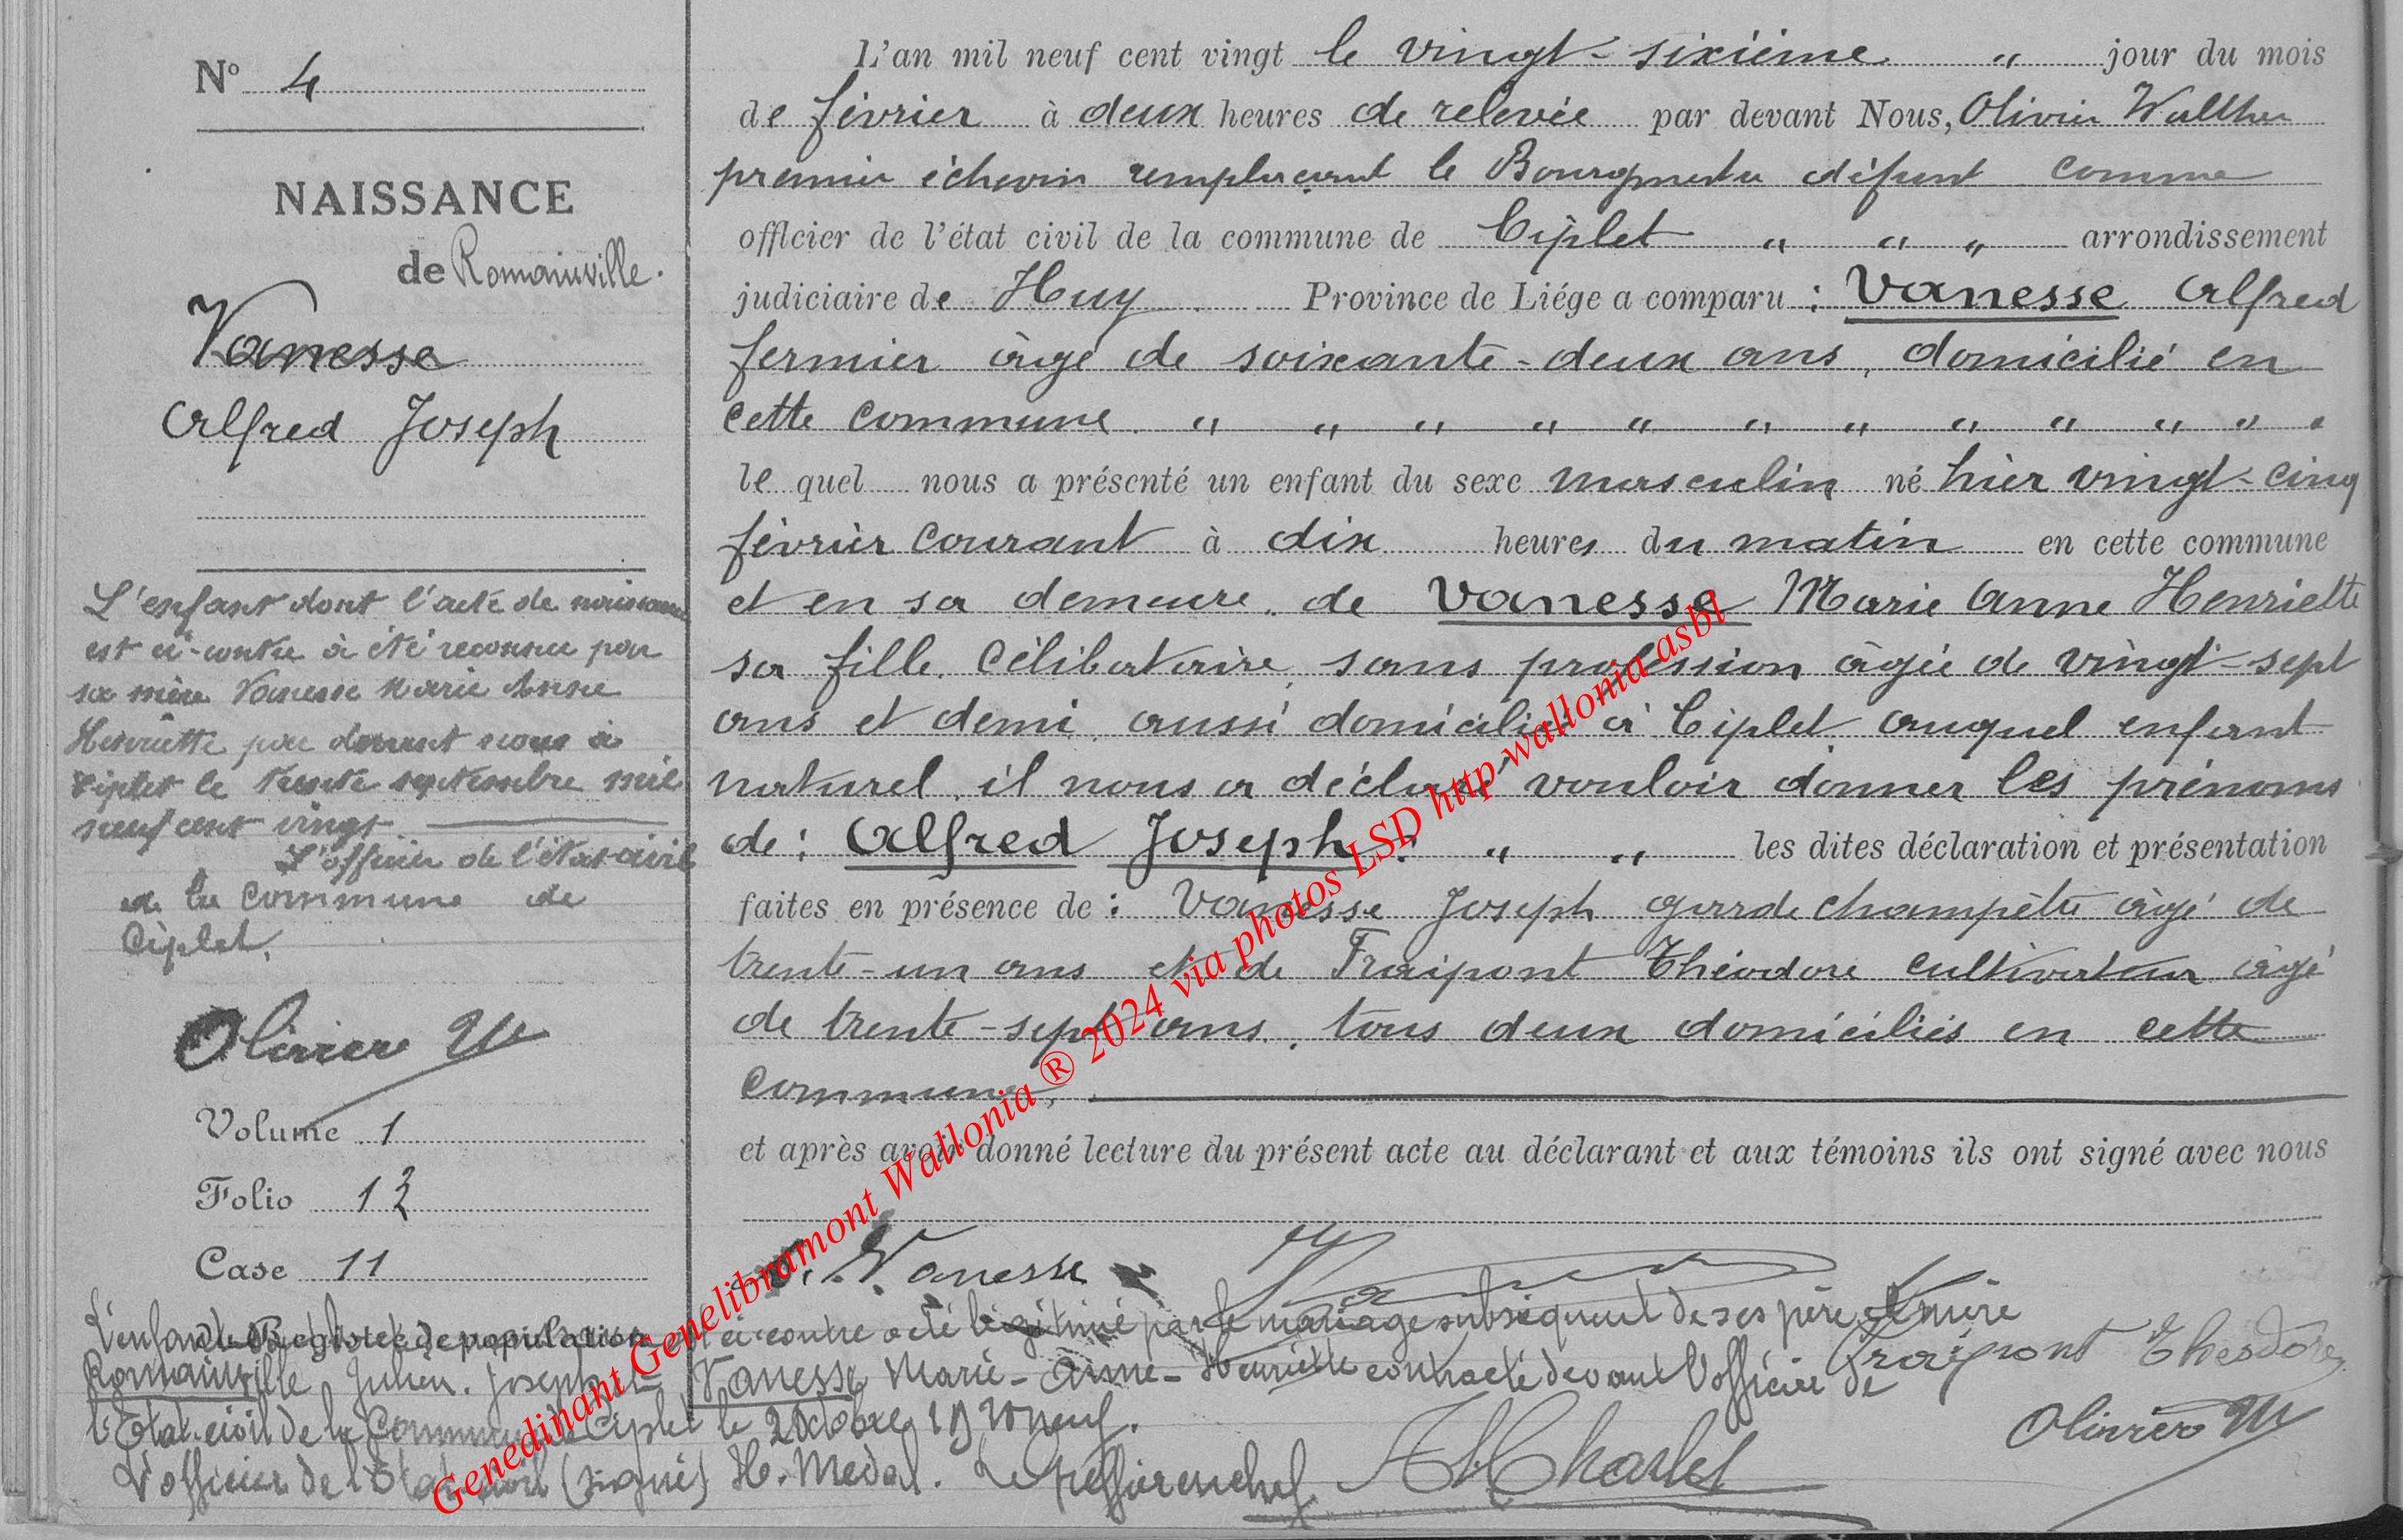 N° 4
NAISSANCE
de Romainville.
Vanesse
Alfred Joseph
L'enfant dont l'acte de naissance
est ci-contre a été reconnu par
sa mère Vanesse Marie Anne
Henriette par devant nous à
Ciplet le trente septembre mil
neuf cent vingt.
L'officier de l'état-civil
de la commune de
Ciplet,
Olivier W
Volume 1
Folio 12
Case 11
du Registre de population
L'an mil neuf cent vingt le vingt-sixième " jour du mois
de février à deux heures de relevée par devant Nous, Olivier Walther
premier échevin remplaçant le Bourgmestre défunt comme
officier de l'état civil de la commune de Ciplet " " " arrondissement
judiciaire de Huy Province de Liége a comparu : Vanesse Alfred
fermier âgé de soixante-deux ans, domicilié en
cette commune. " " " " " " " " " " " "
le quel nous a présenté un enfant du sexe masculin né hier vingt-cinq
février courant à dix heures du matin en cette commune
et en sa demeure. de Vanesse Marie Anne Henriette
sa fille. Célibataire, sans profession âgée de vingt-sept
ans et demi, aussi domiciliée à Ciplet, auquel enfant
naturel, il nous a déclaré vouloir donner les prénoms
de : Alfred Joseph : " " les dites déclaration et présentation
faites en présence de : Vanesse Joseph garde champêtre âgé de
trente-un ans et de Fraipont Théodore cultivateur âgé
de trente-sept ans, tous deux domiciliés en cette
commune,
et après avoir donné lecture du présent acte au déclarant et aux témoins ils ont signé avec nous
Vanesse
Fraipont Theodore
Olivier W
L'enfant ci contre a été légitimé par le mariage subséquent de ses père et mère
Romainville Julien. Joseph et Vanesse Marie-Anne-Henriette contracté devant l'officier de
l'Etat-civil de la Commune de Ciplet le 2 octobre 1920 neuf.
L'officier de l'Etat-civil (signé) H. Medal. Le Greffier en chef,
Genedinant Genelibramont Wallonia ® 2024 via photos LSD http wallonia-asbl